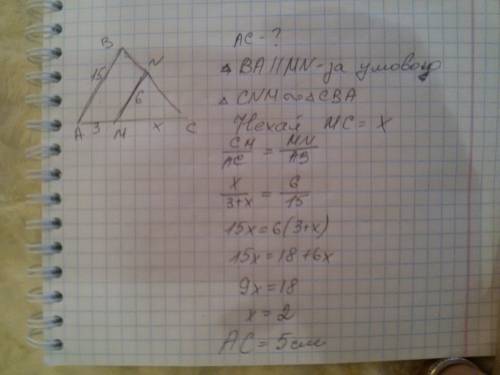 B
N
15
6
A 3 M x C
AC - ?
△ BA || MN - за умовою
△ CNM ∾ △ CBA
Нехай MC = X
CM/AC = MN/AB
x/3+x = 6/15
15x = 6(3+x)
15x = 18 + 6x
9x = 18
x = 2
AC = 5 см